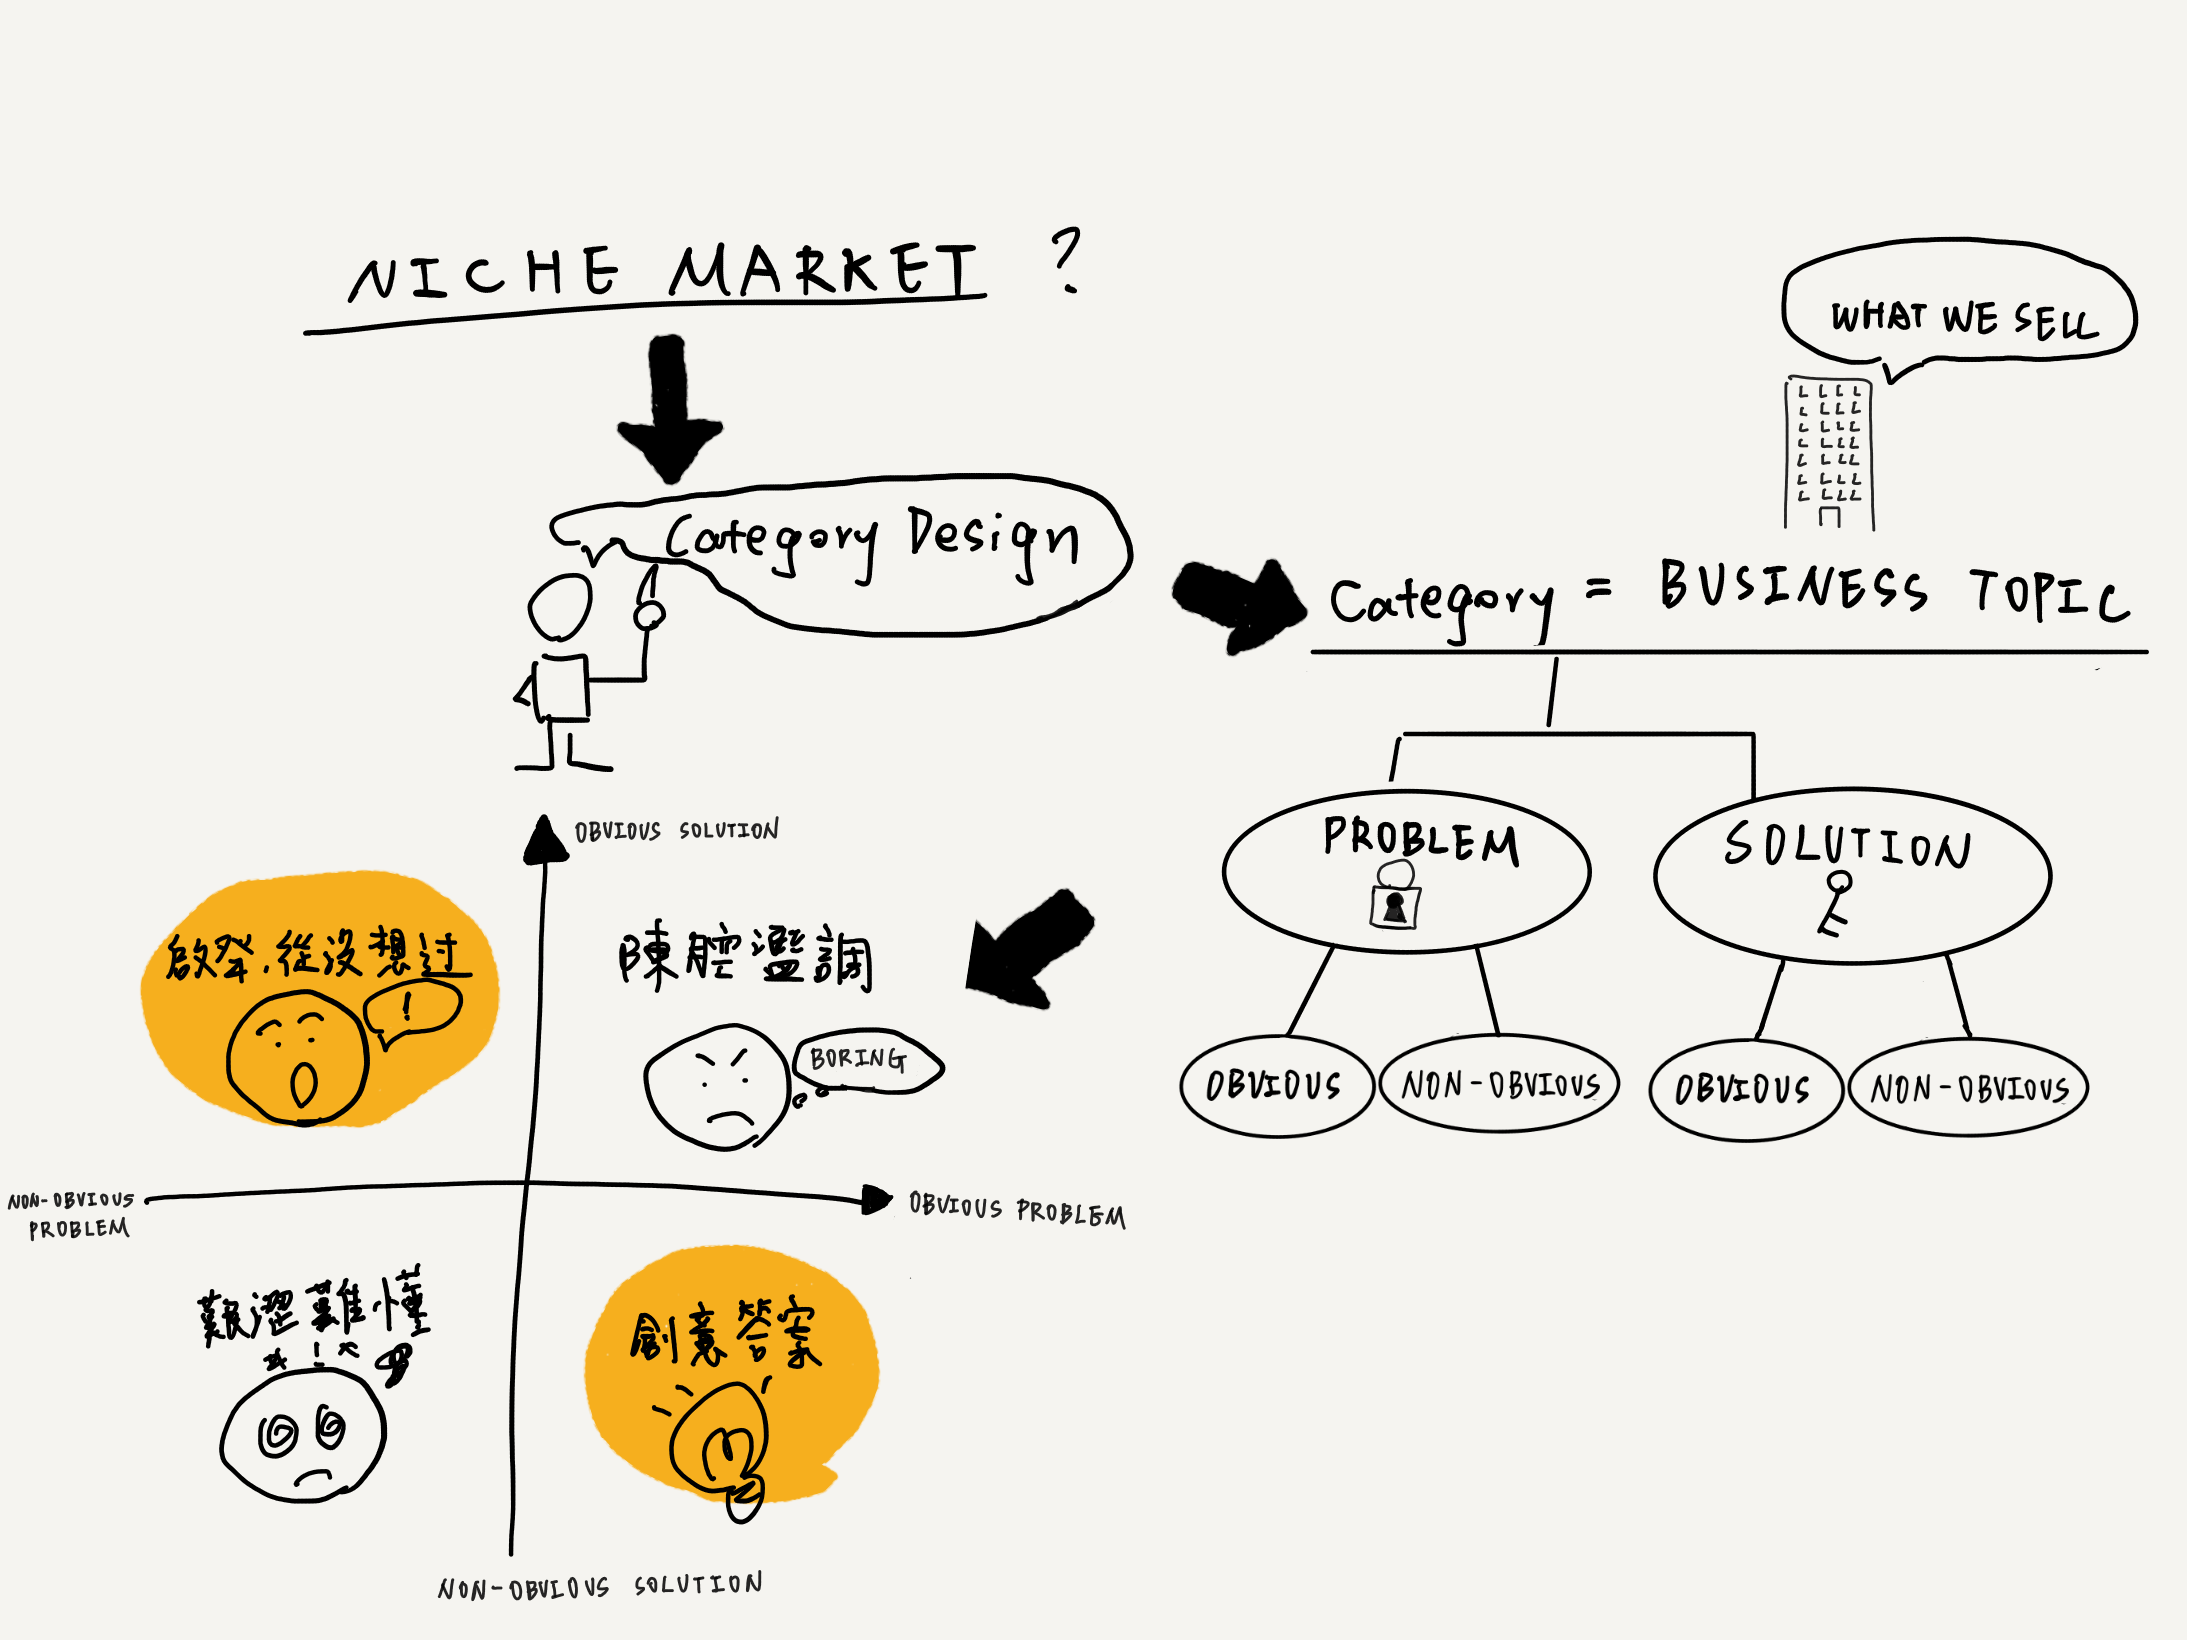 NICHE MARKET ?
Category Design
WHAT WE SELL
Category = BUSINESS TOPIC
PROBLEM
SOLUTION
OBVIOUS
NON-OBVIOUS
OBVIOUS
NON-OBVIOUS
OBVIOUS SOLUTION
啟發.從沒想过
!
陳腔濫調
BORING
NON-OBVIOUS
PROBLEM
OBVIOUS PROBLEM
艱澀難懂
創意答案
NON-OBVIOUS SOLUTION